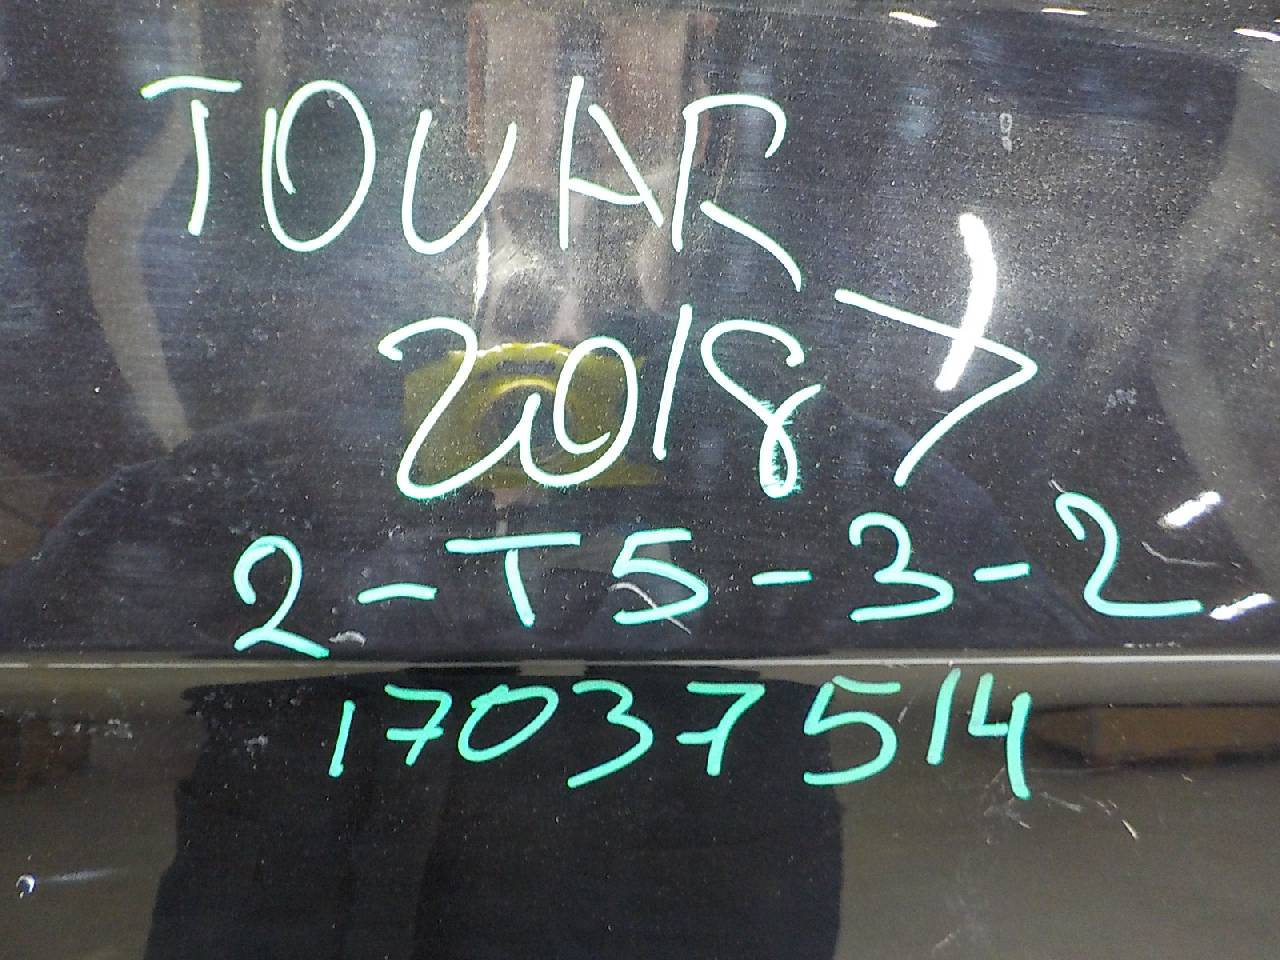 TOUAR
2018
2-T5-3-2
17037514